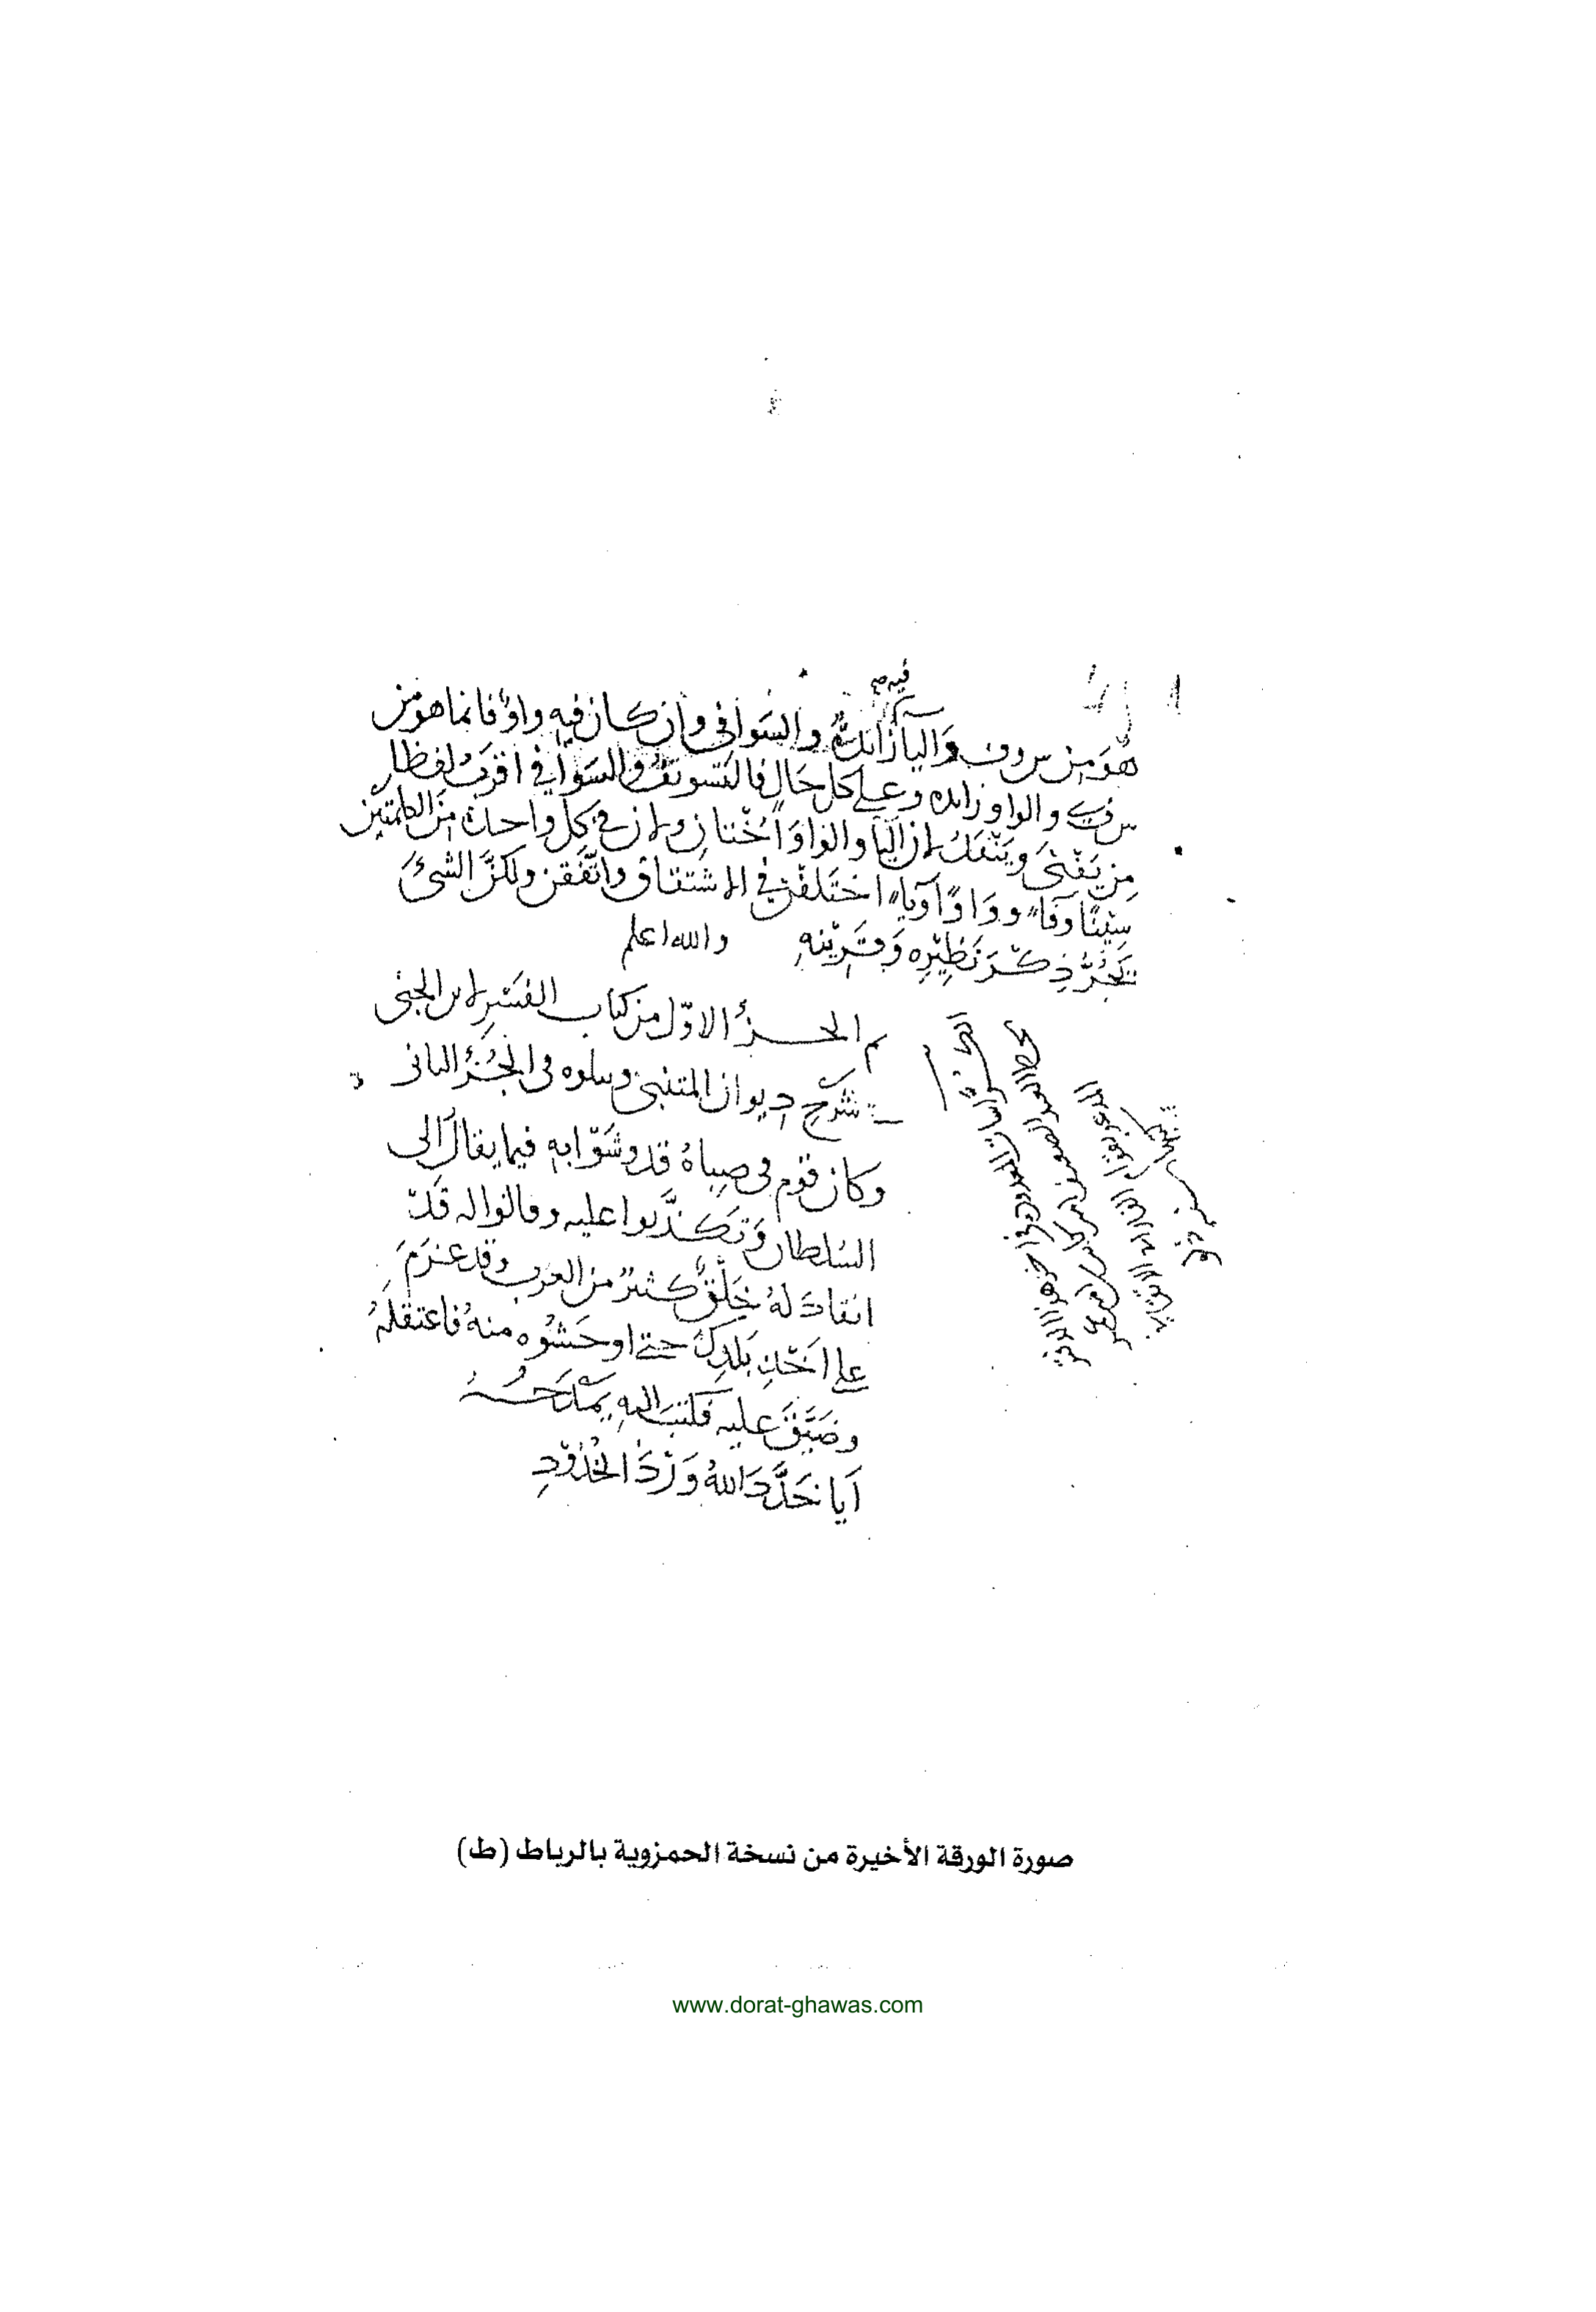 فيه صح
هُوَ مِن س وف وَاليآ زائدةٌ والسَوافي وان كان فيهِ واوٌ فانما هو من
س ف ي والواو زايده وعلى كل حَال فالتسويفُ والسَوافي اقربُ لفظا
مِن يَفْنَى ويَنْفَكُ لان اليا والواوَ اُخْتان ولان في كل واحدة مِنَ الكلمتين
سِيْنًا وفَاءً ووَاوًا ويَاءً اختَلفْن في الاشتقاق واتَّفَقن ولكنَّ الشئَ
يَجُرُّ ذِكْرَ نَظِيْرِه وَقَرِيْنِهِ والله اعلم
تم الجزءُ الاوّل من كتاب الفَسْرِ لابن الجنى
شَرْحِ ديوان المتنبى ويتلوه فى الجُزْءِ الثانى
وكان قوْم فى صِباهُ قد وشَوْا بِهِ فيما يقالُ الى
السُلطان وَتَكَذَّبوا عليه وقالوا له قَدْ
انقادَ لَهُ خَلْقٌ كثيرٌ من العرب وقد عَزَمَ
على اَخْذِ بَلَدِكَ حتى اوحَشُوه منهُ فاعتقلهُ
وضَيَّقَ عليه فكتبَ اليهِ يمْدَحُـــهُ
اَيا خَدَّدَ اللهُ وَرْدَ الخُدُوْدِ
صورة الورقة الأخيرة من نسخة الحمزوية بالرباط (ط)
www.dorat-ghawas.com